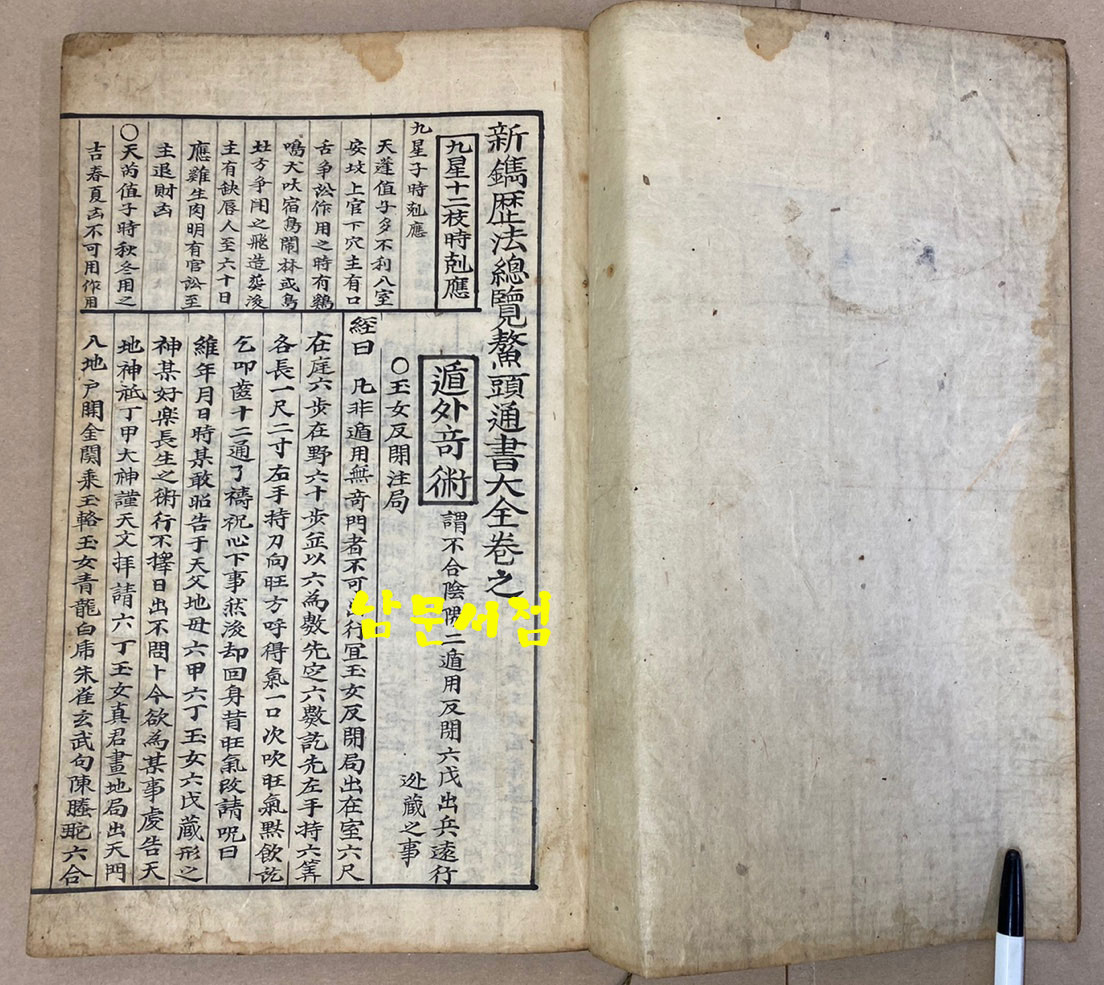 新鐫歴法總覽鰲頭通書大全卷之
九星十二枝時尅應
九星子時尅應
天蓬值子多不利入室
安坟上官下穴主有口
舌争訟作用之時有鷄
鳴犬吠宿鳥鬧林或鳥
北方争鬧之飛造葬後
主有缺唇人至六十日
應雞生肉明有官訟至
主退財凶
〇天芮值子時秋冬用之
吉春夏凶不可用作用
遁外竒術
謂不合陰陽二遁用反閉六戊出兵遠行
迯蔵之事
〇玉女反閉注局
経曰 凡非遁用無竒門者不可出行宜玉女反閉局出在室六尺
在庭六步在野六十步並以六為數先定六數訖先左手持六筭
各長一尺二寸右手持刀向旺方呼得氣一口次吹旺氣黙飲訖
乞叩齒十二通了禱祝心下事然後却回身背旺氣改請呪曰
維年月日時某敢昭告于天父地母六甲六丁玉女六戊蔵形之
神某好楽長生之術行不擇日出不問卜今欲為某事虔告天
地神祇丁甲大神謹天文拝請六丁玉女真君畫地局出天門
入地户閉金関乗玉輅玉女青龍白虎朱雀玄武勾陳螣蛇六合
남문서점